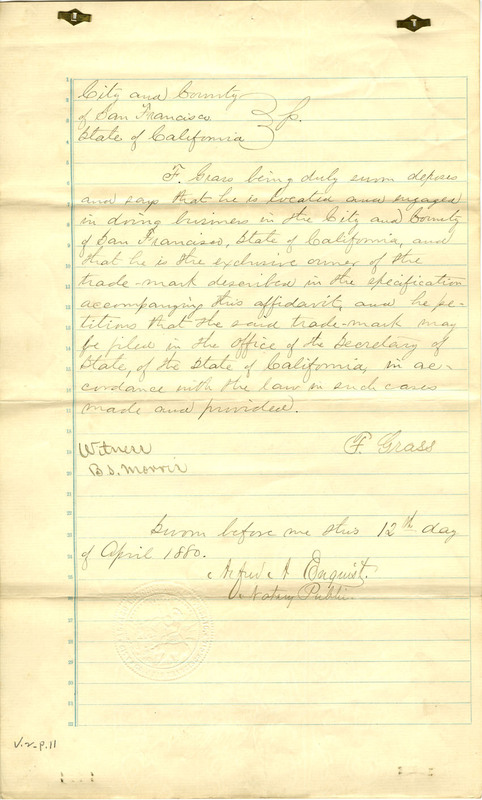 City and County
of San Francisco
State of California
F. Grass being duly sworn deposes
and says that he is located and engaged
in doing business in the City and County
of San Francisco, State of California, and
that he is the exclusive owner of the
trade-mark described in the specification
accompanying this affidavit, and he pe-
titions that the said trade-mark may
be filed in the Office of the Secretary of
State, of the State of California, in ac-
cordance with the law in such cases
made and provided.
Witness
F. Grass
B. S. Morris
Sworn before me this 12th day
of April 1880.
Alfred A Enquist.
Notary Public
V.2-P.11